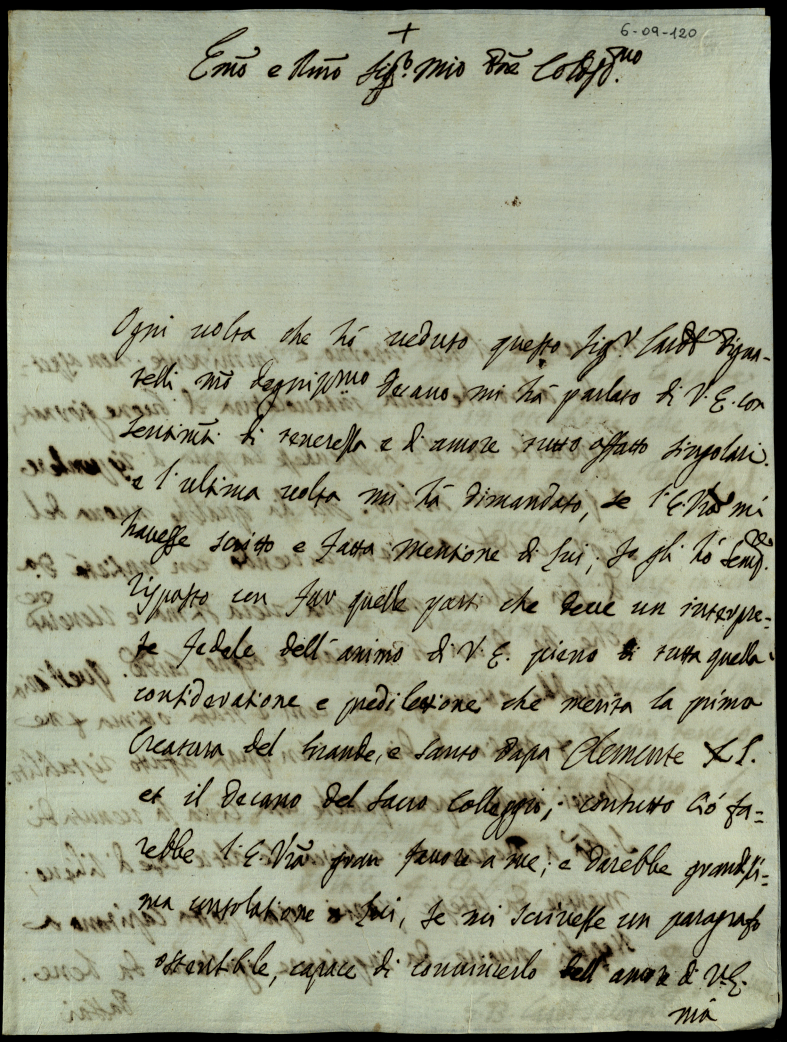 6-09-120
+
Emõ e Rmõ Sigr. mio Prñe Coldsmo.
Ogni volta che hò veduto questo Sigr. Cardl Pigna-
telli nrõ degnissmo Decano mi hà parlato di V. E. con
sentimti di tenerezza e di amore tutto affatto singolari.
e l'ultima volta mi hà dimandato, se l'E. Vrã mi
havesse scritto e fatta mentione di Lui; Io gli hò semp.
risposto con far quelle parti che deve un interpre-
te fedele dell'animo di V. E. pieno di tutta quella
consideratione e predilettione che merita la prima
Creatura del Grande, e Santo Papa Clemente XI.
et il Decano del Sacro Colleggio; contutto ciò fa-
rebbe l'E. Vrã gran favore a me; e darebbe grandissi-
ma consolatione a Lui, se mi scrivesse un paragrafo
ostensibile, capace di convincerlo dell'amore di V. E.
mà